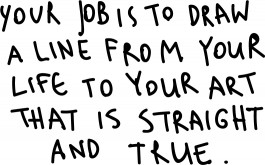 YOUR JOB IS TO DRAW
A LINE FROM YOUR
LIFE TO YOUR ART
THAT IS STRAIGHT
AND TRUE.